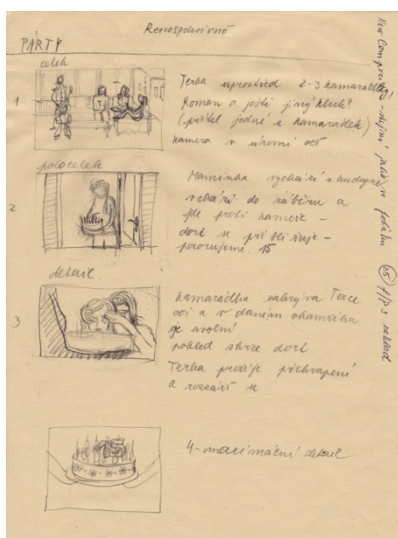 Retrospektivně
PÁRTY
celek
1
Terka uprostřed 2-3 kamarádky
Roman a ještě jiný kluk?
(přítel jedné z kamarádek)
kamera v úrovni očí
polocelek
2
Maminka vychází z kuchyně
vchází do záběru a
jde proti kameře -
dort se přibližuje -
porozujeme 15
detail
3
kamarádka zakrývá Terce
oči a v daném okamžiku
je uvolní
pohled skrze dort
Terka prožije překvapení
a rozzáří se
15
4 - maximační detail
New Composition - stejné jako v
25 f/ps